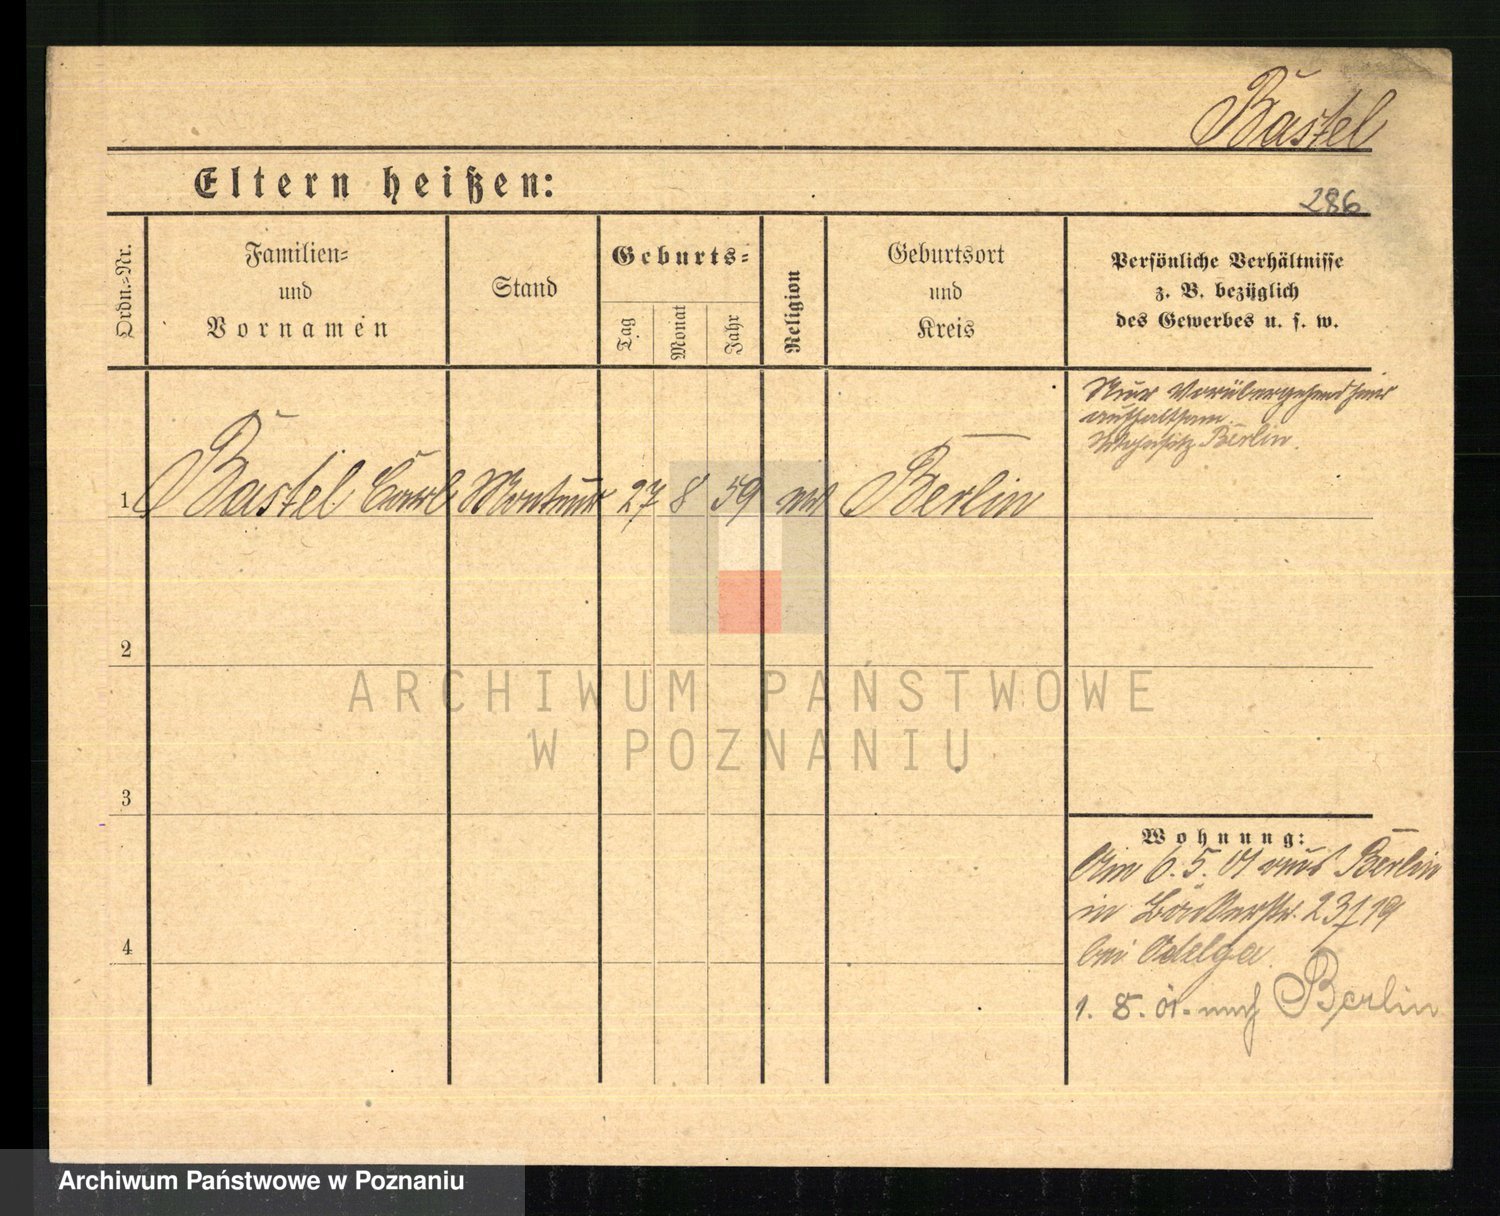 Bastel
Eltern heißen:
286
Ordn.-Nr.
Familien-
und
Vornamen
Stand
Geburts-
Tag
Monat
Jahr
Religion
Geburtsort
und
Kreis
Persönliche Verhältnisse
z. B. bezüglich
des Gewerbes u. s. w.
1 Bastel Carl Monteur 27 8 59 Berlin
Nur vorübergehend hier
aufhaltsam.
Wohnsitz Berlin.
2
3
4
Wohnung:
Am 6. 5. 01 aus Berlin
in Bäckerstr. 23/19
bei Adelga.
1. 8. 01. nach Berlin
ARCHIWUM PAŃSTWOWE
W POZNANIU
Archiwum Państwowe w Poznaniu